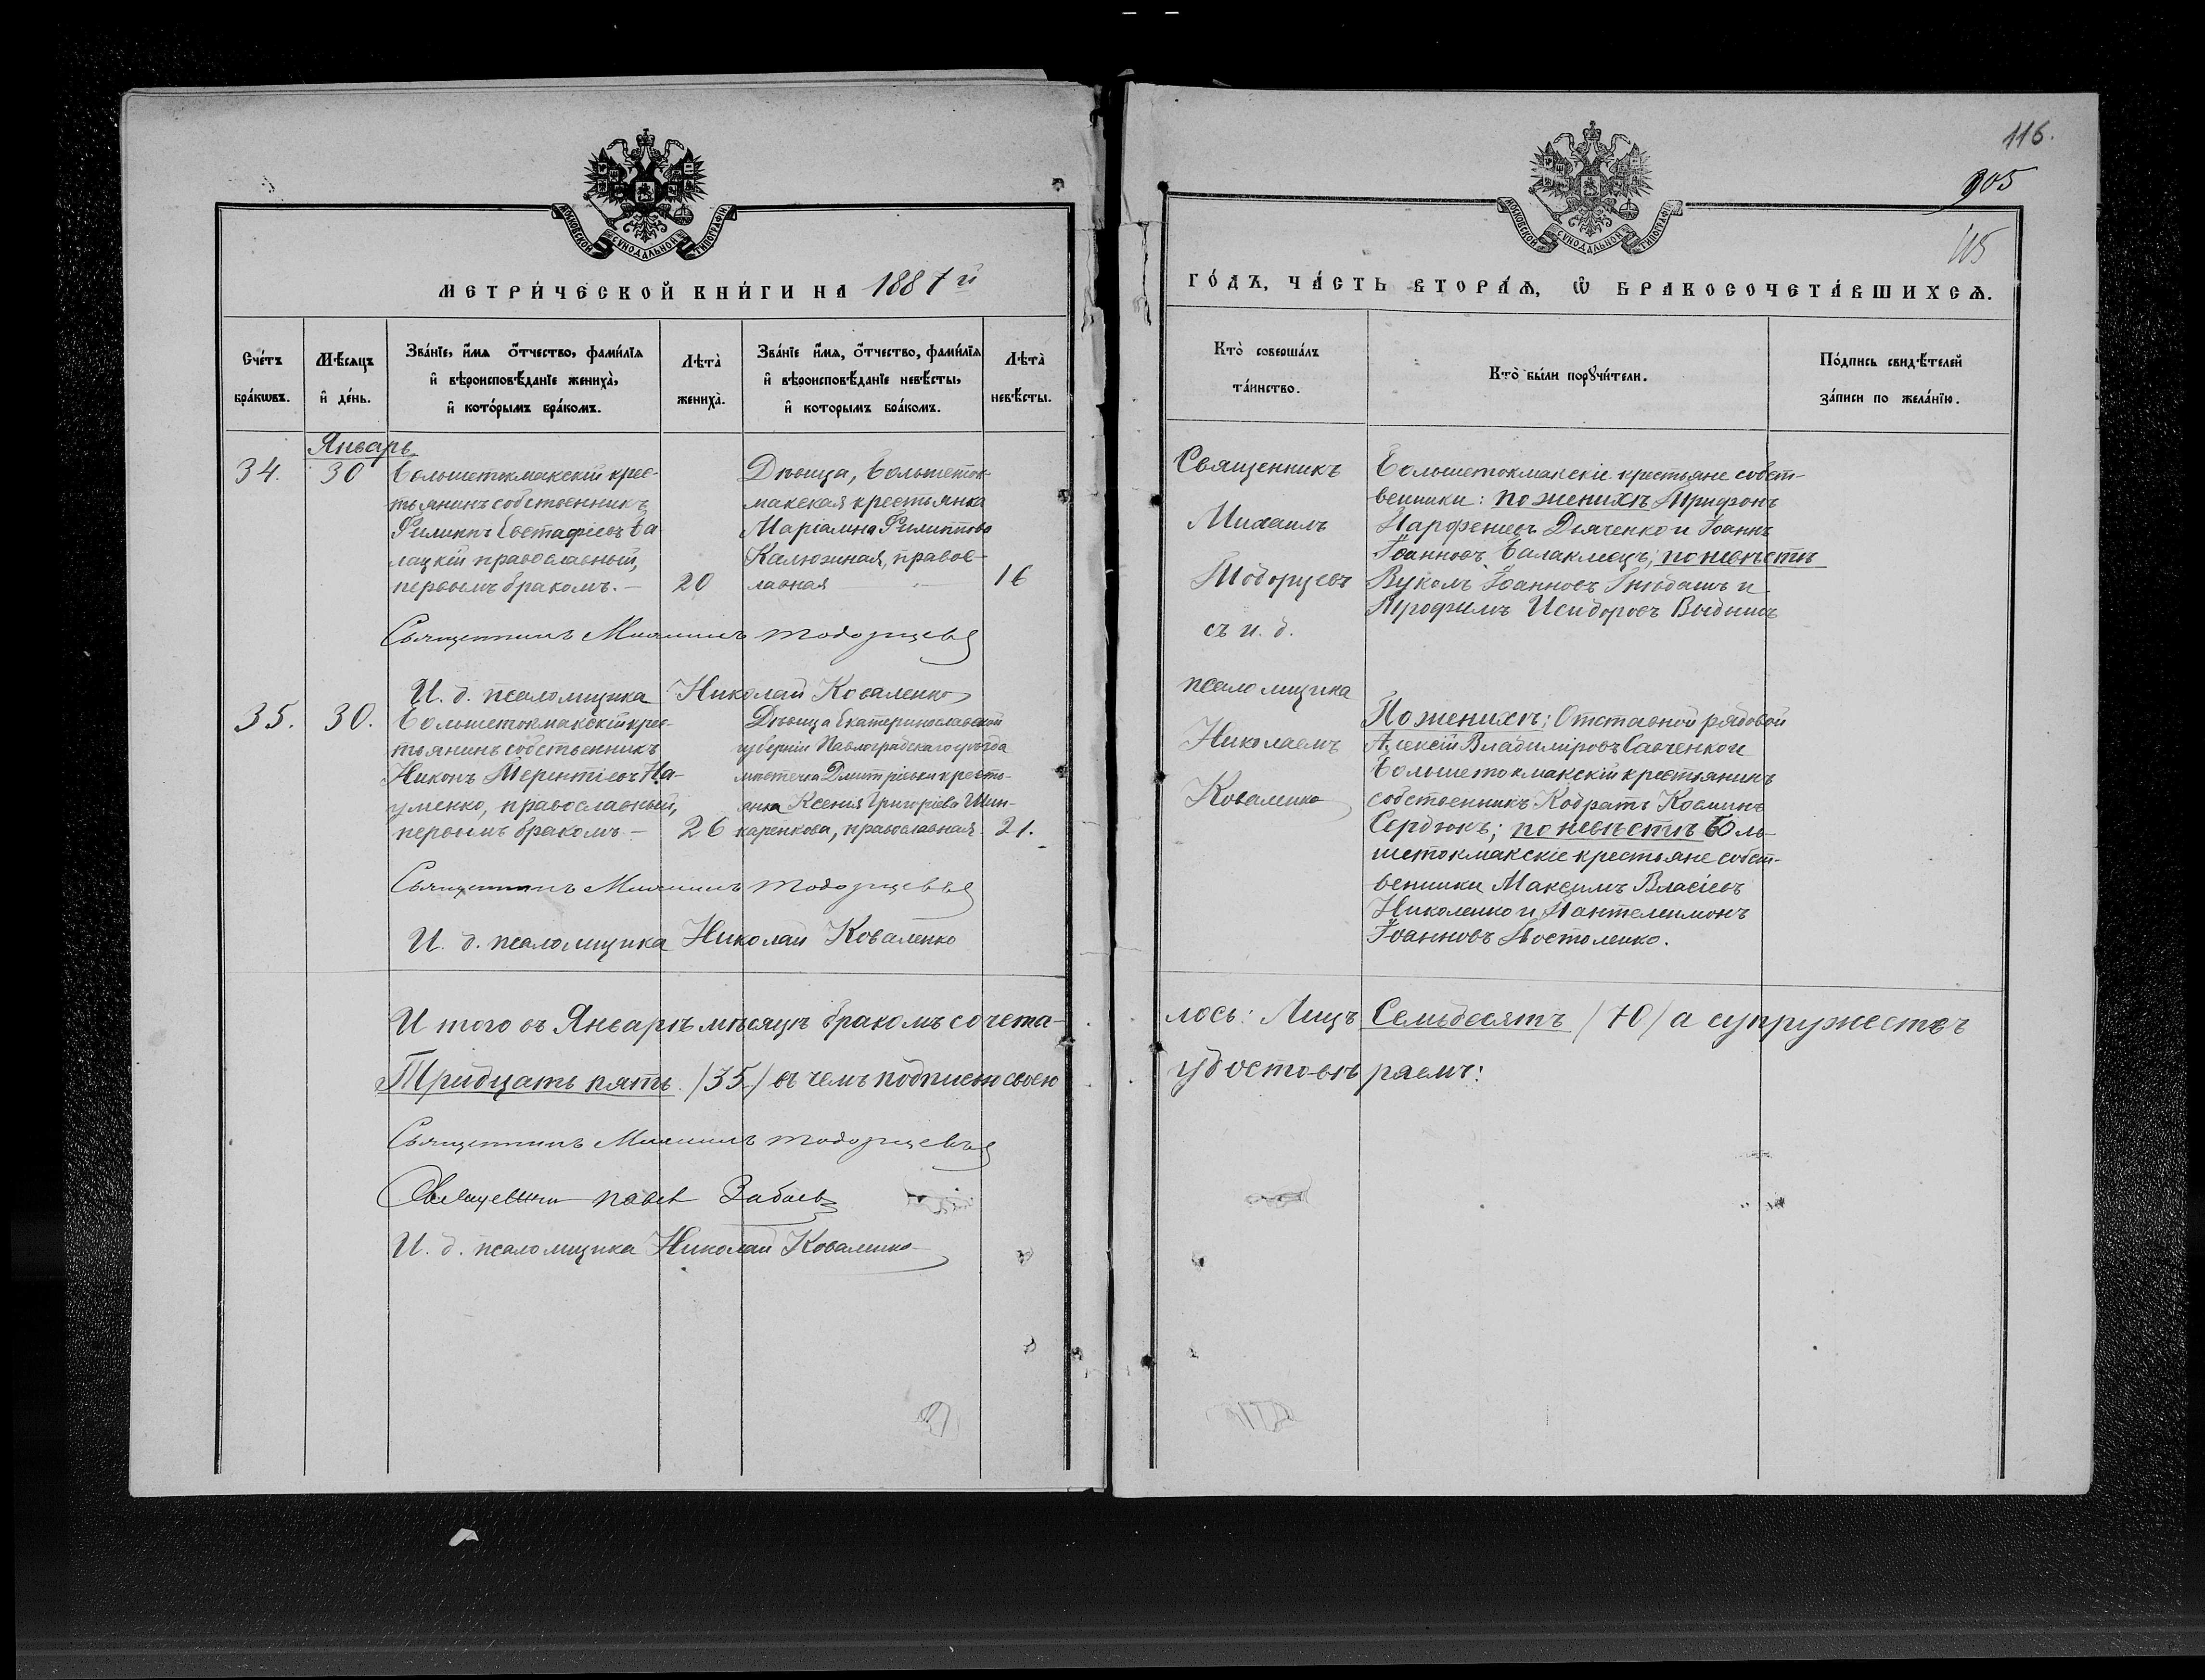 МОСКОВСКОЙ СѴНОДАЛЬНОЙ ТИПОГРАФІИ
МЕТРИ́ЧЕСКОЙ КНИ́ГИ НА 1887 й
Сче́тъ бра́кѡвъ.
Мѣ́сяцъ и҆ де́нь.
Зва́нїе, и҆́мѧ ѻ҆́тчество, фами́лїѧ
и҆ вѣроисповѣ́данїе жениха̀,
и҆ кото́рымъ бра́комъ.
Лѣта̀ жениха̀.
Зва́нїе и҆́мѧ, ѻ҆́тчество, фами́лїѧ
и҆ вѣроисповѣ́данїе невѣ́сты,
и҆ которымъ бра́комъ.
Лѣта̀ невѣ́сты.
Январь
34. 30
Большетокмакскій крес-
тьянинъ собственникъ
Филиппъ Евстафіевъ Ба
лацкій православный,
первымъ бракомъ. —
20
Дѣвица, Большеток-
макская крестьянка
Маріамна Филиппова
Калюжная, правос-
лавная —
16
Священникъ Михаилъ Тодорцевъ
И. д. псаломщика Николай Коваленко
35. 30.
Большетокмакскій крес-
тьянинъ собственникъ
Никонъ Терентіевъ На-
уменко, православный,
первымъ бракомъ —
26
Дѣвица Екатеринославской
губерніи Павлоградскаго уѣзда
мѣстечка Дмитріевки кресть-
янка Ксенія Григоріева Шин-
каренкова, православная
21.
Священникъ Михаилъ Тодорцевъ
И. д. псаломщика Николай Коваленко
И того въ Январѣ мѣсяцѣ бракомъ сочета-
Тридцать пять /35/ въ чемъ подписью своею
Священникъ Михаилъ Тодорцевъ
И. д. псаломщика Николай Коваленко
116.
905
115
МОСКОВСКОЙ СѴНОДАЛЬНОЙ ТИПОГРАФІИ
ГО́ДЪ, ЧА́СТЬ ВТОРА́Ѧ, Ѡ҆ БРАКОСОЧЕТА́ВШИХСѦ.
Кто̀ соверша́лъ та́инство.
Кто̀ бы́ли порꙋчи́тели.
По́дпись свидѣ́телей
за́писи по жела́нїю.
Священникъ
Михаилъ
Тодорцевъ
съ и. д.
псаломщика
Николаемъ
Коваленко
Большетокмакскіе крестьяне собст-
венники: по женихѣ Трифонъ
Парфеніевъ Дяченко и Іоаннъ
Іоанновъ Балаклецъ; по невѣстѣ
Вуколъ Іоанновъ Гнѣдашъ и
Трофимъ Исидоровъ Выдышъ
По женихѣ: Отставной рядовой
Алексій Владиміровъ Савченко и
Большетокмакскій крестьянинъ
собственникъ Кодратъ Косминъ
Сердюкъ; по невѣстѣ Боль-
шетокмакскіе крестьяне собст-
венники Максимъ Власіевъ
Николенко и Пантелеимонъ
Іоанновъ Костоленко.
лось: Лицъ Семьдесятъ /70/ а супружествъ
удостовѣряемъ: